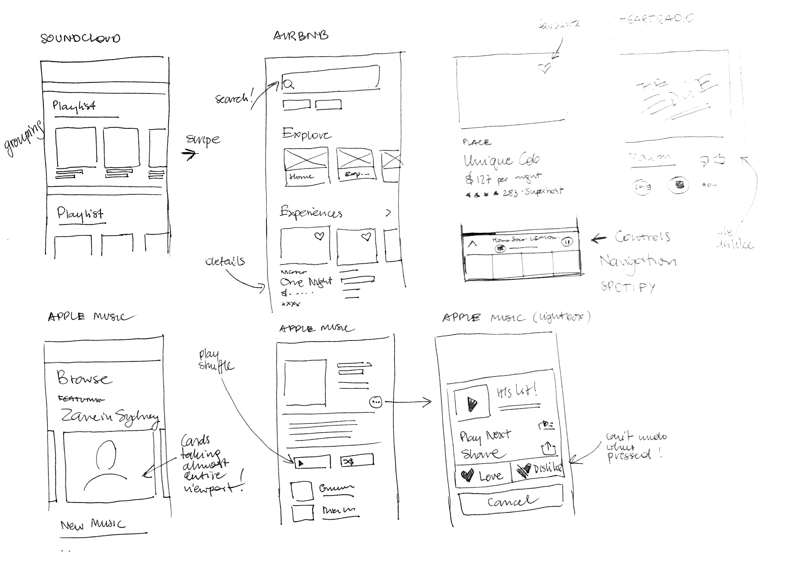 SOUNDCLOUD
Playlist
grouping
swipe
Playlist
AIRBNB
search!
Explore
Home
Exp...
Experiences
details
One Night
$
favourite
PLACE
Unique Cob
$127 per night
283 · Superhost
Controls
Navigation
SPOTIFY
HEARTRADIO
dislike
APPLE MUSIC
Browse
FEATURING
Zane in Sydney
Cards
taking
almost
entire
viewport!
NEW MUSIC
APPLE MUSIC
play
shuffle
APPLE MUSIC (lightbox)
It's lit!
Play Next
Share
Love
Dislike
Cancel
can't undo
when
pressed!